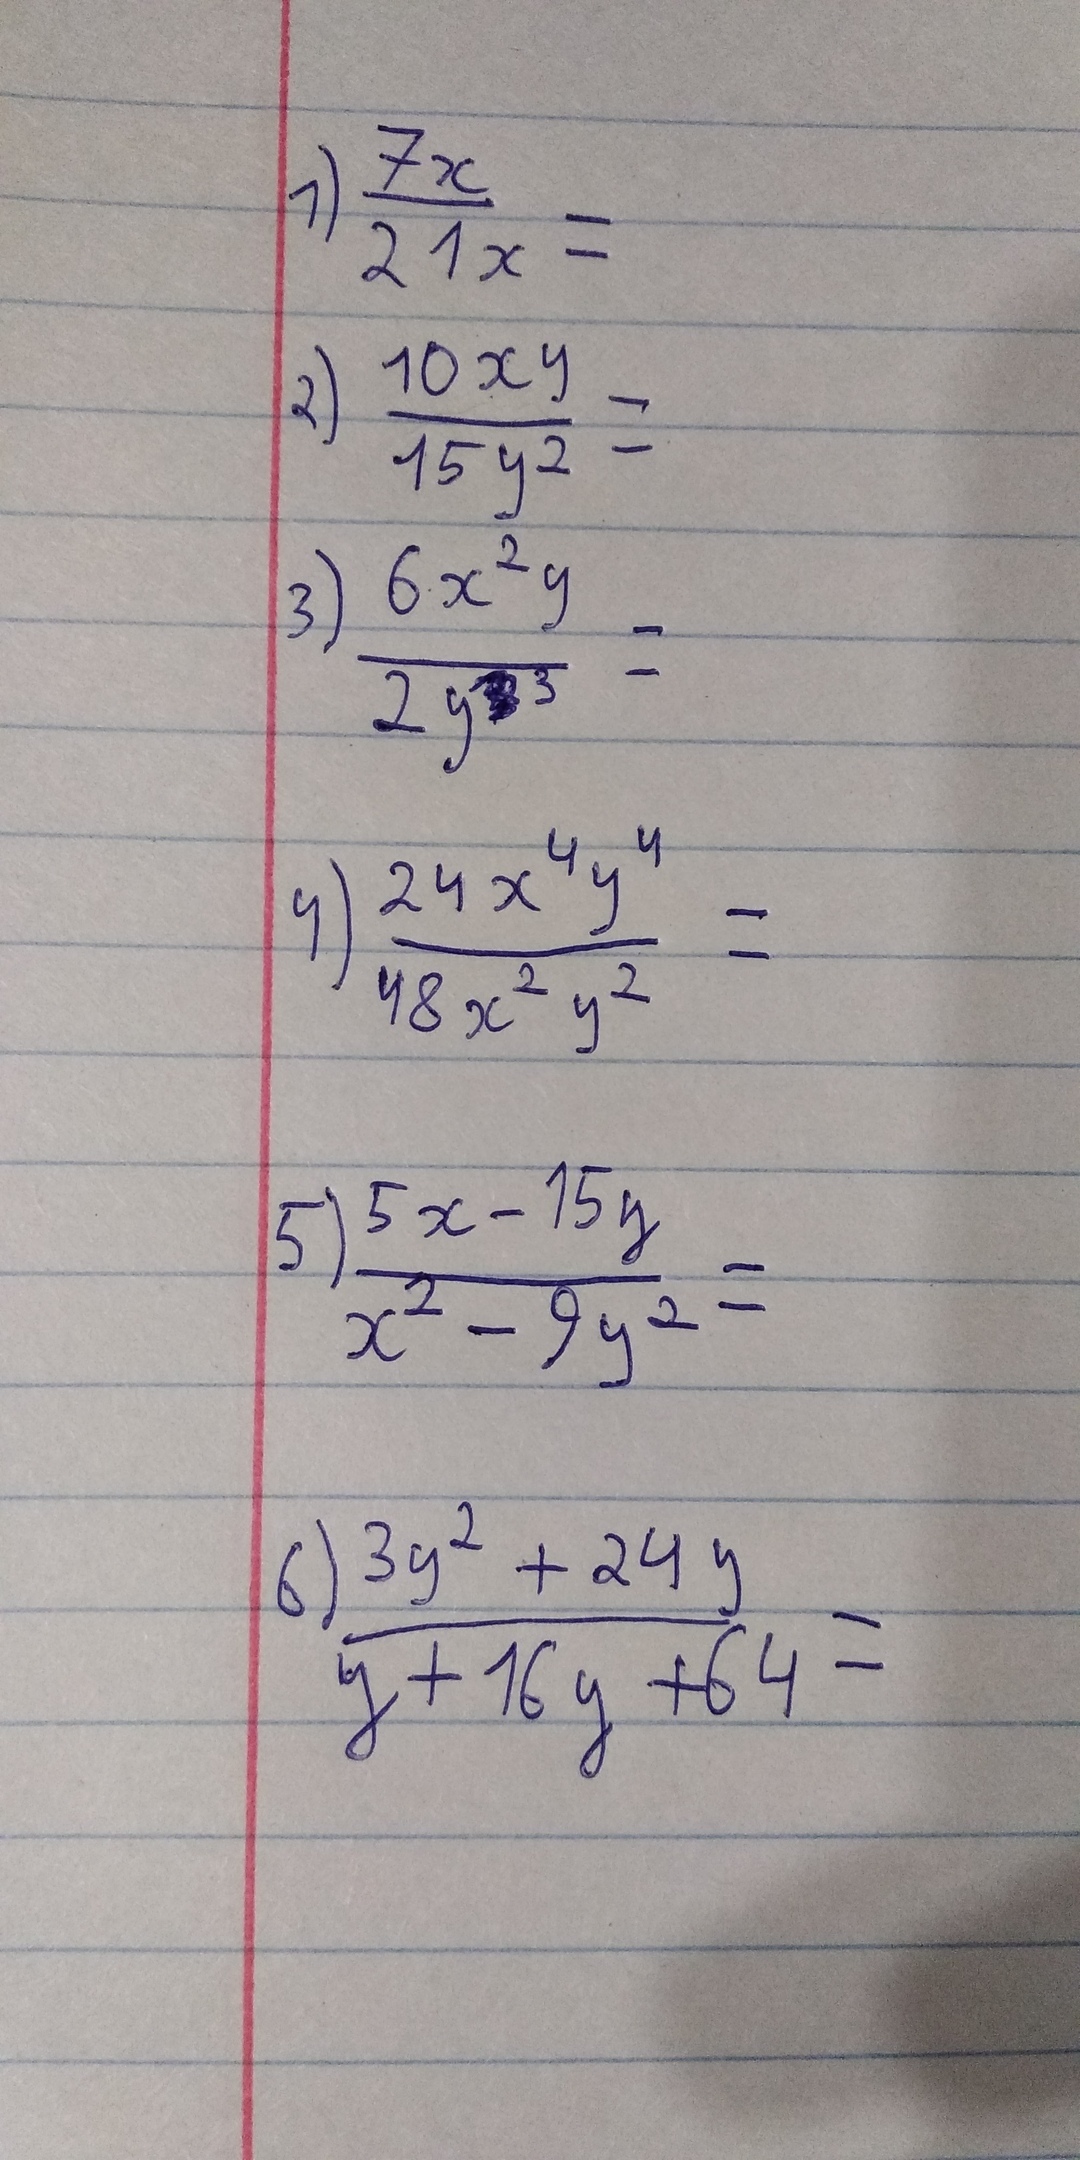 1) 7x
21x =
2) 10xy
15y² =
3) 6x²y
2y³ =
4) 24x⁴y⁴
48x²y² =
5) 5x - 15y
x² - 9y² =
6) 3y² + 24y
y + 16y + 64 =